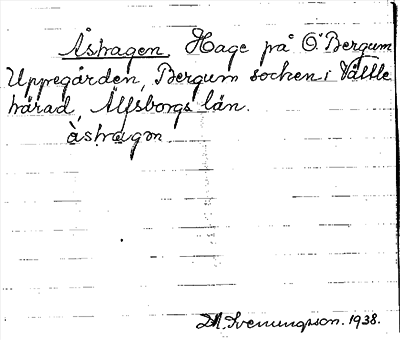 Åshagen. Hage på Ö. Bergum
Uppegården, Bergum socken i Vättle
härad, Älfsborgs län.
àshagɷn.
M. Svenungsson. 1938.